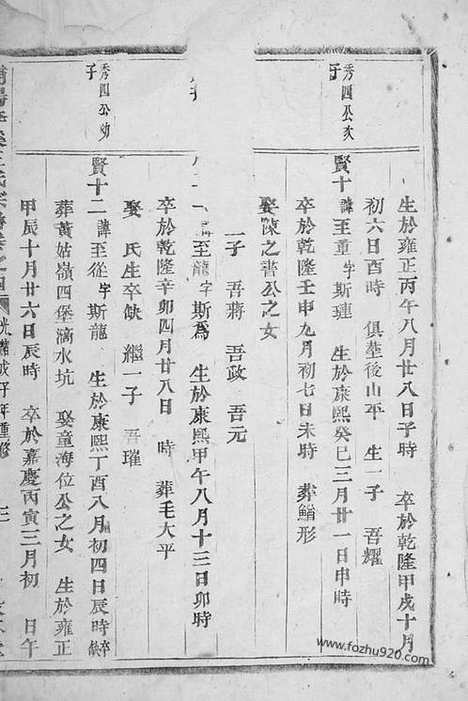 秀四公次子
秀四公幼子
生於雍正丙午八月廿八日子時 卒於乾隆甲戌十月
初六日酉時 俱塟後山平 生一子 吾耀
賢十 諱至重 字斯璉 生於康熙癸巳三月廿一日申時
卒於乾隆壬申九月初七日未時 葬鰌形
娶陳之書公之女
一子 吾蔣 吾政 吾元
至龍 字斯為 生於康熙甲午八月十三日卯時
卒於乾隆辛卯四月廿八日 時 葬毛大平
娶 氏生卒缺 繼一子 吾璀
賢十二 諱至從 字斯龍 生於康熙丁酉八月初四日辰時 卒缺
葬黃姑嶺四堡滴水坑 娶童海位公之女 生於雍正
甲辰十月廿六日辰時 卒於嘉慶丙寅三月初 日午
氏宗譜卷之四 光緒戊子年重修 三
www.fozhu920.com